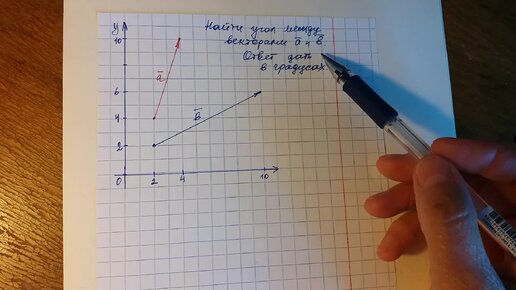 Найти угол между
векторами a̅ и b̅.
Ответ дать
в градусах.
y
10
a̅
6
b̅
4
2
0 2 4 10